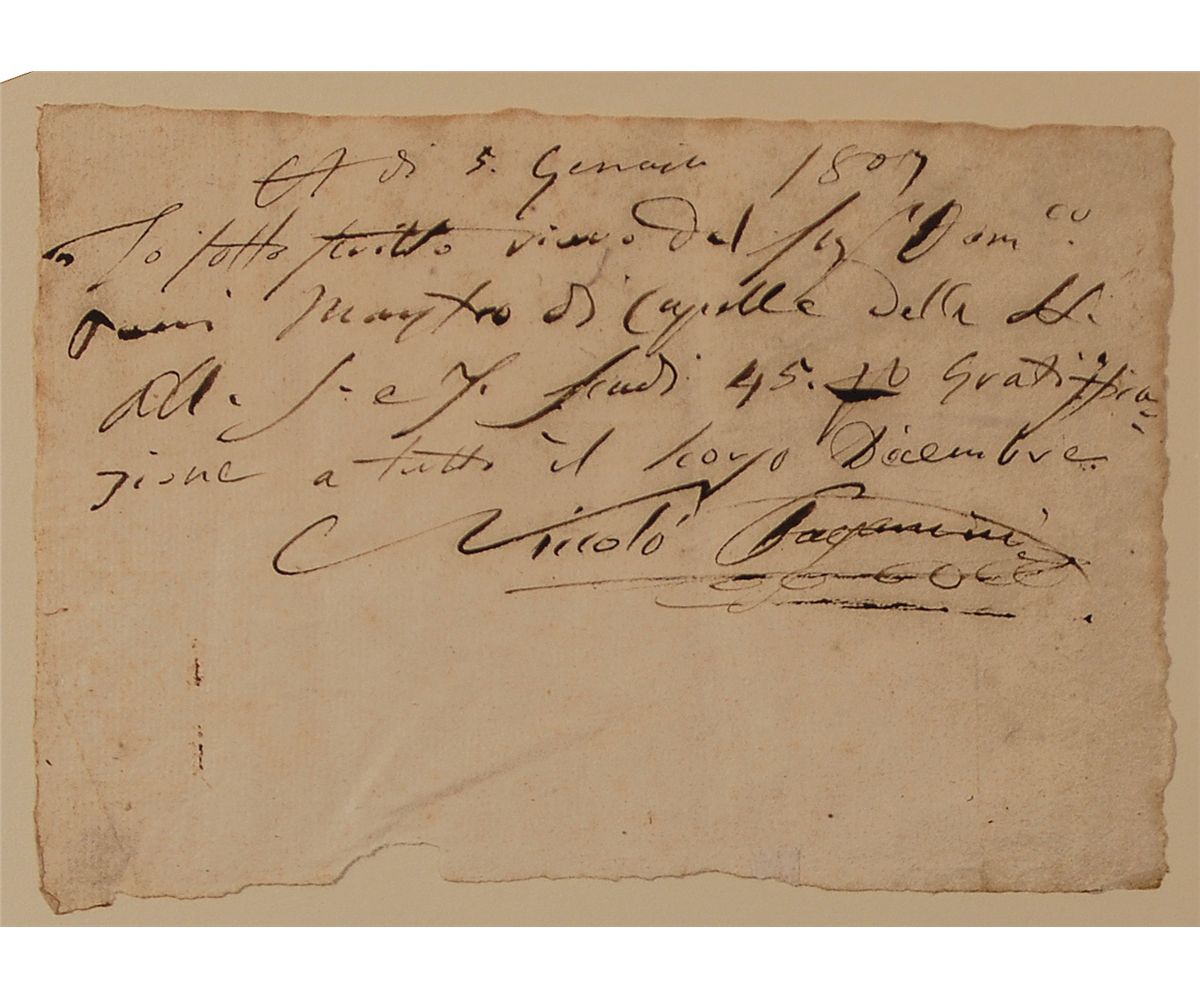 A di 5. Gennaio 1807
Io sotto scritto ricevo dal Sig.r Dom.co
Puccini Maestro di Capella della
AA. S. e I. scudi 45. per Gratifica-
zione a tutto il scorso Dicembre.
Nicolò Paganini